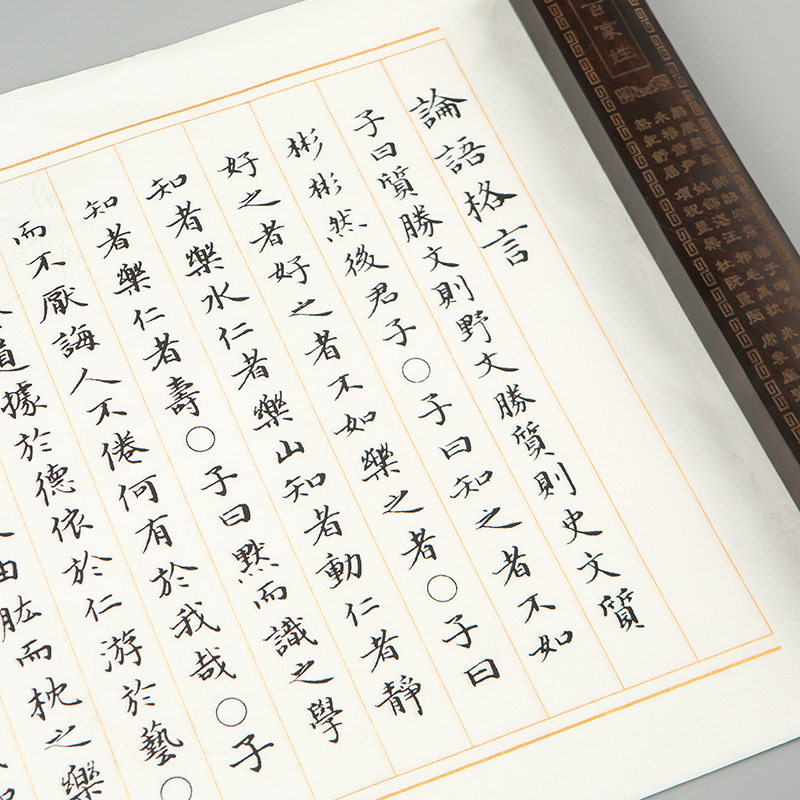 論語格言
子曰質勝文則野文勝質則史文質
彬彬然後君子○子曰知之者不如
好之者好之者不如樂之者○子曰
知者樂水仁者樂山知者動仁者靜
知者樂仁者壽○子曰默而識之學
而不厭誨人不倦何有於我哉○子
道據於德依於仁游於藝○
肱而枕之樂
百家姓
紀舒屈 項祝董梁 杜阮藍閔